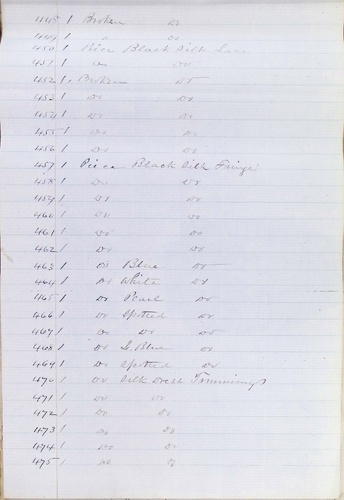 448 1 Broken Do
449 1 " Do
450 1 Piece Black Silk Lace
451 1 Do Do
452 1 Broken Do
453 1 Do Do
454 1 Do Do
455 1 Do Do
456 1 Do Do
457 1 Piece Black Silk Fringe
458 1 Do Do
459 1 Do Do
460 1 Do Do
461 1 Do Do
462 1 Do Do
463 1 Do Blue Do
464 1 Do White Do
465 1 Do Pearl Do
466 1 Do Spotted Do
467 1 Do Do Do
468 1 Do L. Blue Do
469 1 Do Spotted Do
470 1 Do Silk Dress Trimmings
471 1 Do Do
472 1 Do Do
473 1 Do Do
474 1 Do Do
475 1 Do Do